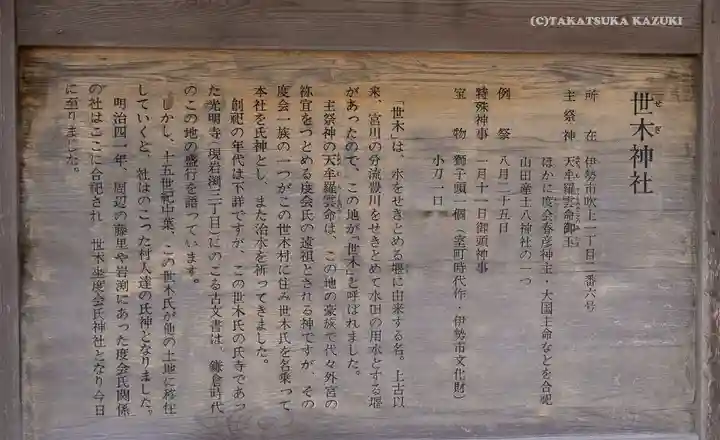 (C)TAKATSUKA KAZUKI
世木神社
せぎ
所在 伊勢市吹上一丁目二番六号
主祭神 天牟羅雲命御玉
ほかに度会春彦神主・大国主命などを合祀
山田産土八神社の一つ
例祭 八月二十五日
特殊神事 一月十一日御頭神事
宝物 獅子頭一個(室町時代作・伊勢市文化財)
小刀一口
「世木」は、水をせきとめる堰に由来する名。上古以
来、宮川の分流豊川をせきとめて水田の用水とする堰
があったので、この地が「世木」と呼ばれました。
主祭神の天牟羅雲命は、この地の豪族で代々外宮の
祢宜をつとめる度会氏の遠祖とされる神ですが、その
度会一族の一つがこの世木村に住み世木氏を名乗って
本社を氏神とし、また治水を祈ってきました。
創祀の年代は不詳ですが、この世木氏の氏寺であっ
た光明寺(現岩渕三丁目)にのこる古文書は、鎌倉時代
のこの地の盛行を語っています。
しかし、十五世紀中葉、この世木氏が他の土地に移住
していくと、社はのこった村人達の氏神となりました。
明治四一年、周辺の藤里や岩渕にあった度会氏関係
の社はここに合祀され 世木坐度会氏神社となり今日
に至りました。